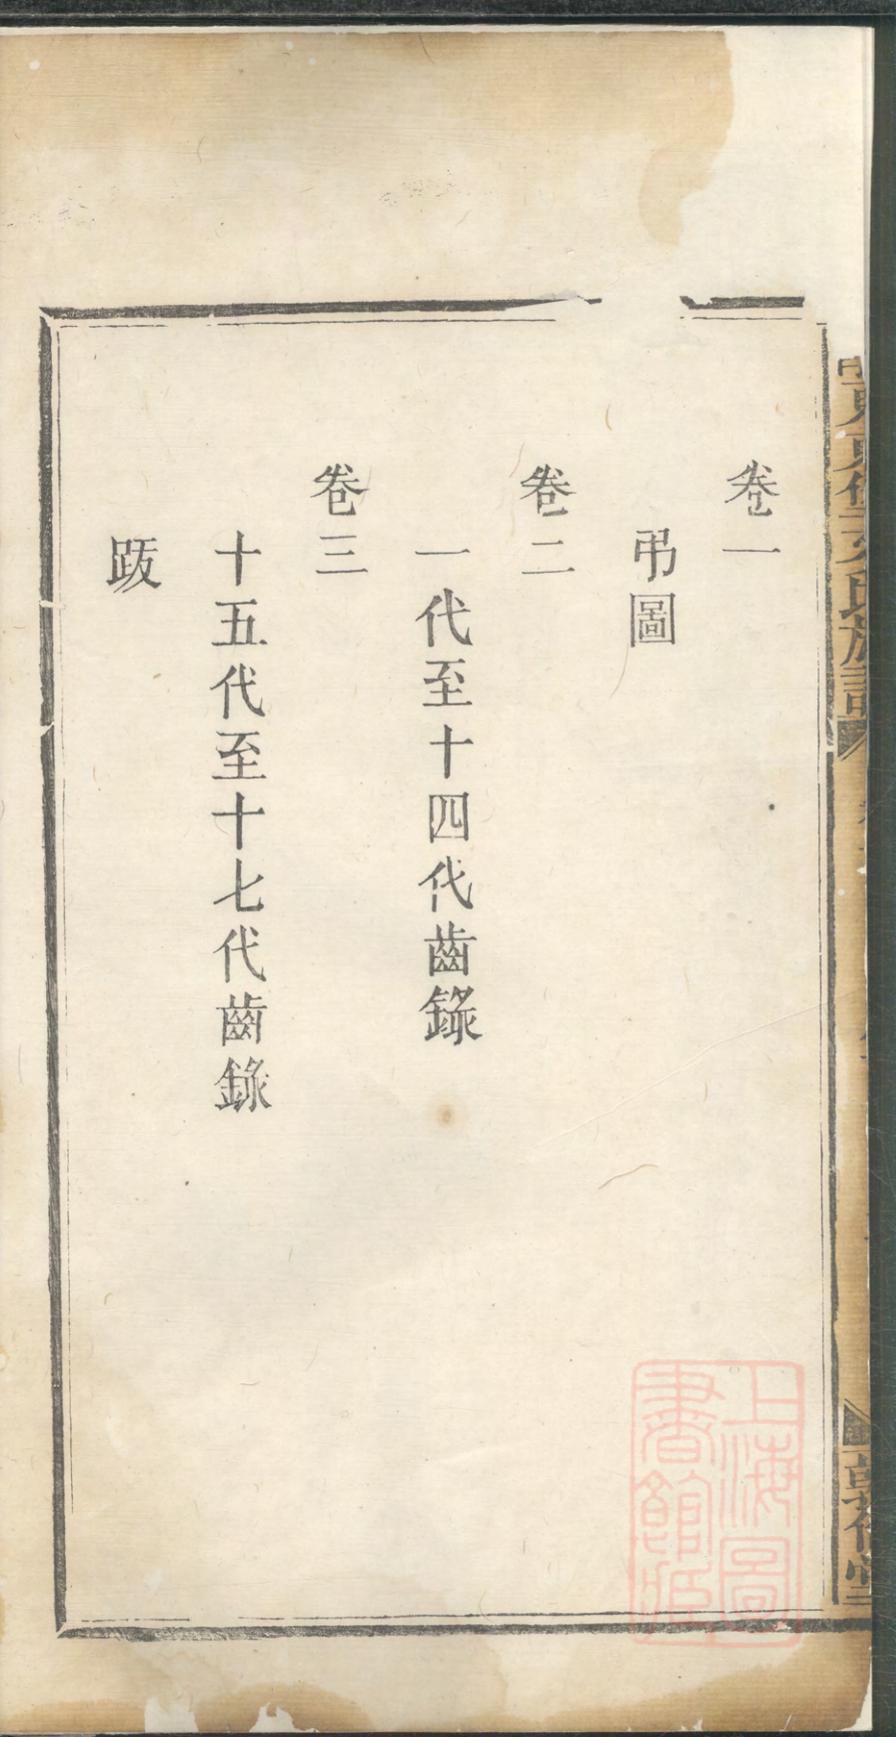 卷一
弔圖
卷二
一代至十四代齒錄
卷三
十五代至十七代齒錄
跋
上海圖書館藏